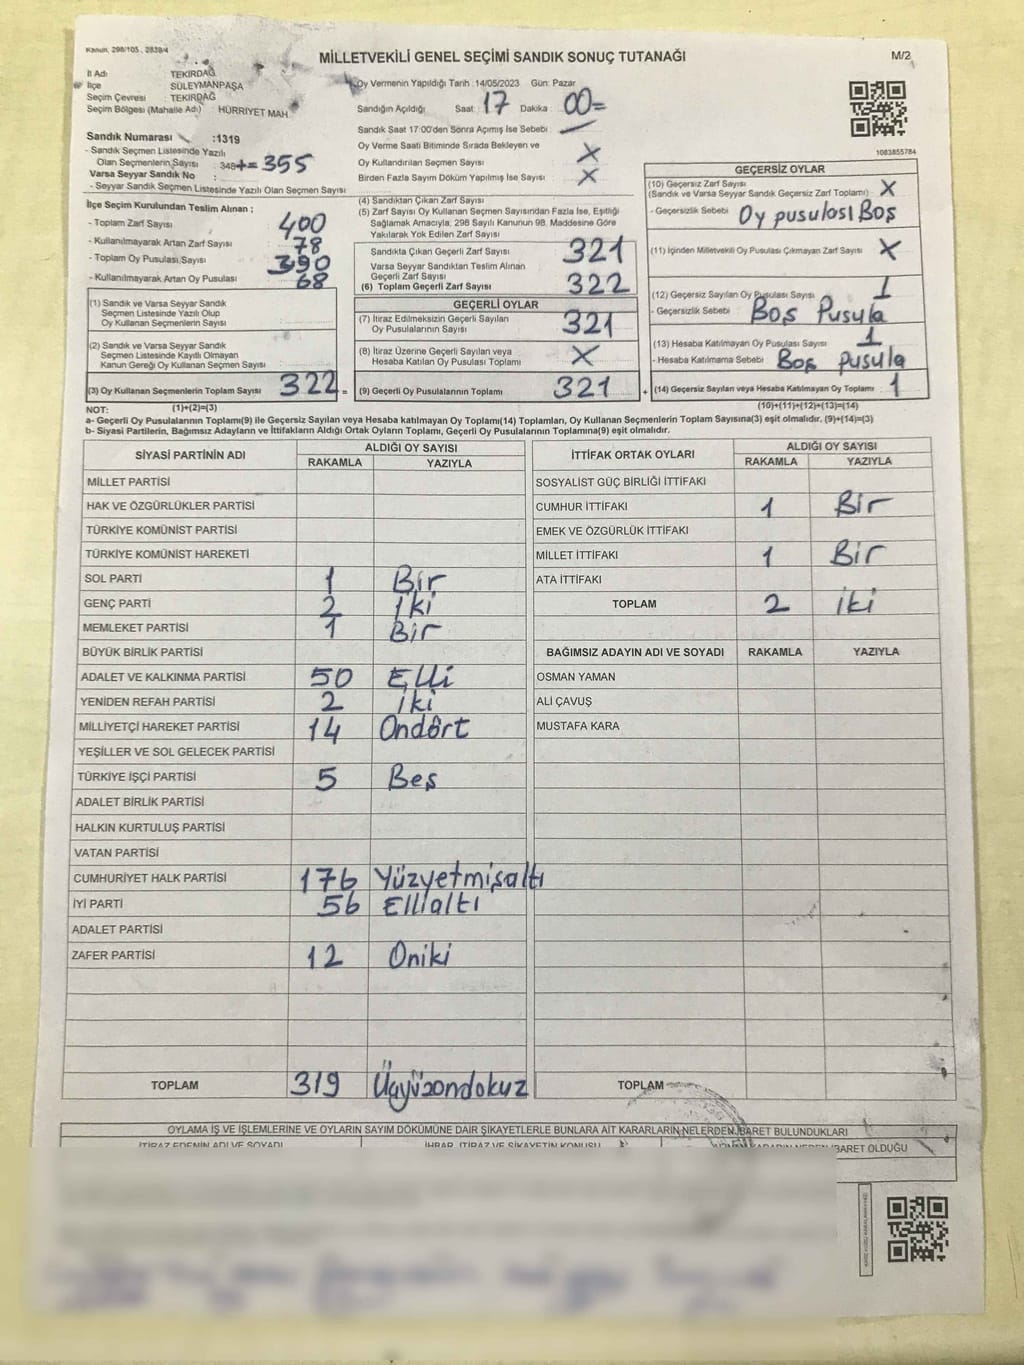 Kanun, 298/105 , 2839/4
MİLLETVEKİLİ GENEL SEÇİMİ SANDIK SONUÇ TUTANAĞI
M/2
İl Adı TEKİRDAĞ
İlçe SÜLEYMANPAŞA
Seçim Çevresi TEKİRDAĞ
Seçim Bölgesi (Mahalle Adı) : HÜRRİYET MAH.
Oy Vermenin Yapıldığı Tarih : 14/05/2023 Gün: Pazar
Sandığın Açıldığı Saat: 17 Dakika : 00=
Sandık Saat 17:00'den Sonra Açımış İse Sebebi :
Sandık Numarası :1319
- Sandık Seçmen Listesinde Yazılı
Olan Seçmenlerin Sayısı : 348+= 355
Varsa Seyyar Sandık No :
- Seyyar Sandık Seçmen Listesinde Yazılı Olan Seçmen Sayısı
Oy Verme Saati Bitiminde Sırada Bekleyen ve
Oy Kullandırılan Seçmen Sayısı X
Birden Fazla Sayım Döküm Yapılmış İse Sayısı X
1083855784
İlçe Seçim Kurulundan Teslim Alınan ;
- Toplam Zarf Sayısı 400
- Kullanılmayarak Artan Zarf Sayısı 78
- Toplam Oy Pusulası Sayısı 390
- Kullanılmayarak Artan Oy Pusulası 68
(1) Sandık ve Varsa Seyyar Sandık
Seçmen Listesinde Yazılı Olup
Oy Kullanan Seçmenlerin Sayısı :
(2) Sandık ve Varsa Seyyar Sandık
Seçmen Listesinde Kayıtlı Olmayan
Kanun Gereği Oy Kullanan Seçmen Sayısı
(3) Oy Kullanan Seçmenlerin Toplam Sayısı 322 =
(1)+(2)=(3)
(4) Sandıktan Çıkan Zarf Sayısı
(5) Zarf Sayısı Oy Kullanan Seçmen Sayısından Fazla İse, Eşitliği
Sağlamak Amacıyla, 298 Sayılı Kanunun 98. Maddesine Göre
Yakılarak Yok Edilen Zarf Sayısı
Sandıkta Çıkan Geçerli Zarf Sayısı 321
Varsa Seyyar Sandıktan Teslim Alınan
Geçerli Zarf Sayısı
(6) Toplam Geçerli Zarf Sayısı 322
GEÇERLİ OYLAR
(7) İtiraz Edilmeksizin Geçerli Sayılan
Oy Pusulalarının Sayısı 321
(8) İtiraz Üzerine Geçerli Sayılan veya
Hesaba Katılan Oy Pusulası Toplamı X
(9) Geçerli Oy Pusulalarının Toplamı 321 +
GEÇERSİZ OYLAR
(10) Geçersiz Zarf Sayısı
(Sandık ve Varsa Seyyar Sandık Geçersiz Zarf Toplamı) X
- Geçersizlik Sebebi : Oy pusulası Boş
(11) İçinden Milletvekili Oy Pusulası Çıkmayan Zarf Sayısı X
(12) Geçersiz Sayılan Oy Pusulası Sayısı 1
- Geçersizlik Sebebi Boş Pusula
(13) Hesaba Katılmayan Oy Pusulası Sayısı 1
- Hesaba Katılmama Sebebi Boş pusula
(14) Geçersiz Sayılan veya Hesaba Katılmayan Oy Toplamı : 1
(10)+(11)+(12)+(13)=(14)
NOT:
a- Geçerli Oy Pusulalarının Toplamı(9) ile Geçersiz Sayılan veya Hesaba katılmayan Oy Toplamı(14) Toplamları, Oy Kullanan Seçmenlerin Toplam Sayısına(3) eşit olmalıdır. (9)+(14)=(3)
b- Siyasi Partilerin, Bağımsız Adayların ve İttifakların Aldığı Ortak Oyların Toplamı, Geçerli Oy Pusulalarının Toplamına(9) eşit olmalıdır.
SİYASİ PARTİNİN ADI ALDIĞI OY SAYISI
RAKAMLA YAZIYLA
MİLLET PARTİSİ
HAK VE ÖZGÜRLÜKLER PARTİSİ
TÜRKİYE KOMÜNİST PARTİSİ
TÜRKİYE KOMÜNİST HAREKETİ
SOL PARTİ 1 Bir
GENÇ PARTİ 2 iki
MEMLEKET PARTİSİ 1 Bir
BÜYÜK BİRLİK PARTİSİ
ADALET VE KALKINMA PARTİSİ 50 Elli
YENİDEN REFAH PARTİSİ 2 iki
MİLLİYETÇİ HAREKET PARTİSİ 14 Ondört
YEŞİLLER VE SOL GELECEK PARTİSİ
TÜRKİYE İŞÇİ PARTİSİ 5 Beş
ADALET BİRLİK PARTİSİ
HALKIN KURTULUŞ PARTİSİ
VATAN PARTİSİ
CUMHURİYET HALK PARTİSİ 176 Yüzyetmişaltı
İYİ PARTİ 56 Ellialtı
ADALET PARTİSİ
ZAFER PARTİSİ 12 Oniki
TOPLAM 319 Üçyüzondokuz
İTTİFAK ORTAK OYLARI ALDIĞI OY SAYISI
RAKAMLA YAZIYLA
SOSYALİST GÜÇ BİRLİĞİ İTTİFAKI
CUMHUR İTTİFAKI 1 Bir
EMEK VE ÖZGÜRLÜK İTTİFAKI
MİLLET İTTİFAKI 1 Bir
ATA İTTİFAKI
TOPLAM 2 iki
BAĞIMSIZ ADAYIN ADI VE SOYADI RAKAMLA YAZIYLA
OSMAN YAMAN
ALİ ÇAVUŞ
MUSTAFA KARA
TOPLAM
OYLAMA İŞ VE İŞLEMLERİNE VE OYLARIN SAYIM DÖKÜMÜNE DAİR ŞİKAYETLERLE BUNLARA AİT KARARLARIN NELERDEN İBARET BULUNDUKLARI
İTİRAZ EDENİN ADI VE SOYADI İHBAR, İTİRAZ VE ŞİKAYETİN KONUSU İBARET OLDUĞU